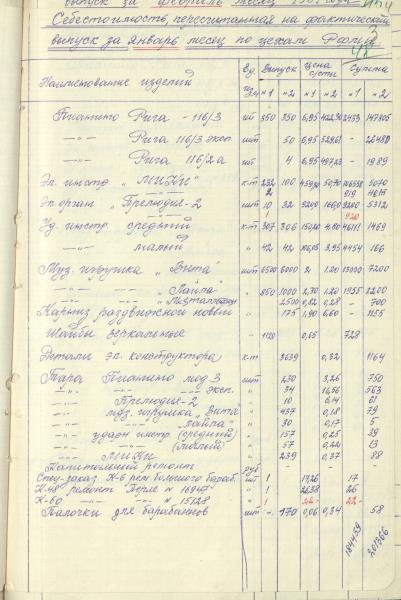 выпуск за февраль месяц
Себестоимость, пересчитанная на фактический
выпуск за январь месяц по цехам РФМИ
Наименование изделий Ед. изм. Выпуск Цена с/сти Сумма
н1 н2 н1 н2 н1 н2
Пианино Рига - 116/3 шт 350 350 6,95 422,30 2433 147805
—"— Рига 116/3 эксп. шт 50 6,95 529,61 - 26480
—"— Рига 116/2а шт 4 6,95 497,23 - 1989
Эл. инстр. „МИКИ" к-т 232 100 459,30 50,70 106558 5070
2 919 4615
Эл. орган „Прелюдия-2 шт 10 32 920,0 166,0 9200 5312
1 920
Уд. инстр. средний к-т 307 306 150,20 4,80 46111 1469
—"— малый " 42 42 106,05 3,95 4454 166
Муз. игрушка „Вита" шт 6500 6000 2 1,20 13000 7200
—"— —"— „Лайла" " 850 1000 2,30 1,20 1955 1200
2500 0,82 0,28 - 700
Карниз раздвижной новый " 175 1,90 6,60 - 1155
Шайбы зеркальные " 1120 0,65 728
Детали эл. конструктора к-т 3639 0,32 1164
Тара Пианино мод 3 шт 230 3,26 750
—"— —"— эксп. " 34 16,56 563
—"— Прелюдия-2 " 10 6,14 61
—"— муз. игрушка „Вита " 437 0,18 79
—"— —"— „Лайла" " 30 0,17 5
—"— ударн инстр (средний) " 157 0,25 39
—"— —"— (малый) " 57 0,24 13
—"— МИКИ " 239 0,37 88
Капитальный ремонт руб
Спец-заказ К-6 рем. большого бараб. шт 1 17,26 17
К-48 ремонт Верле № 16947 " 1 26,38 26
К-60 —"— № 15128 " 1 22- 22-
Палочки для барабанов шт - 170 0,06 0,34 58
184459 201366